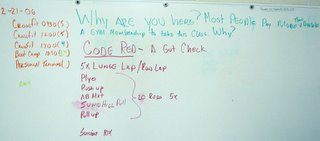 2-21-06
Crossfit 0930 (5)
Crossfit 1200 (5)
Crossfit 1700 (4)
Boot Camp
Personal Training
Why are you here? Most People Pay More Than
A Gym Membership to take this Class. Why?
Code Red - A Gut Check
5x Lunge Lap / Run Lap
Plyo
Push up
AB Mat
Sumo High Pull
Pull up
20 Reps 5x